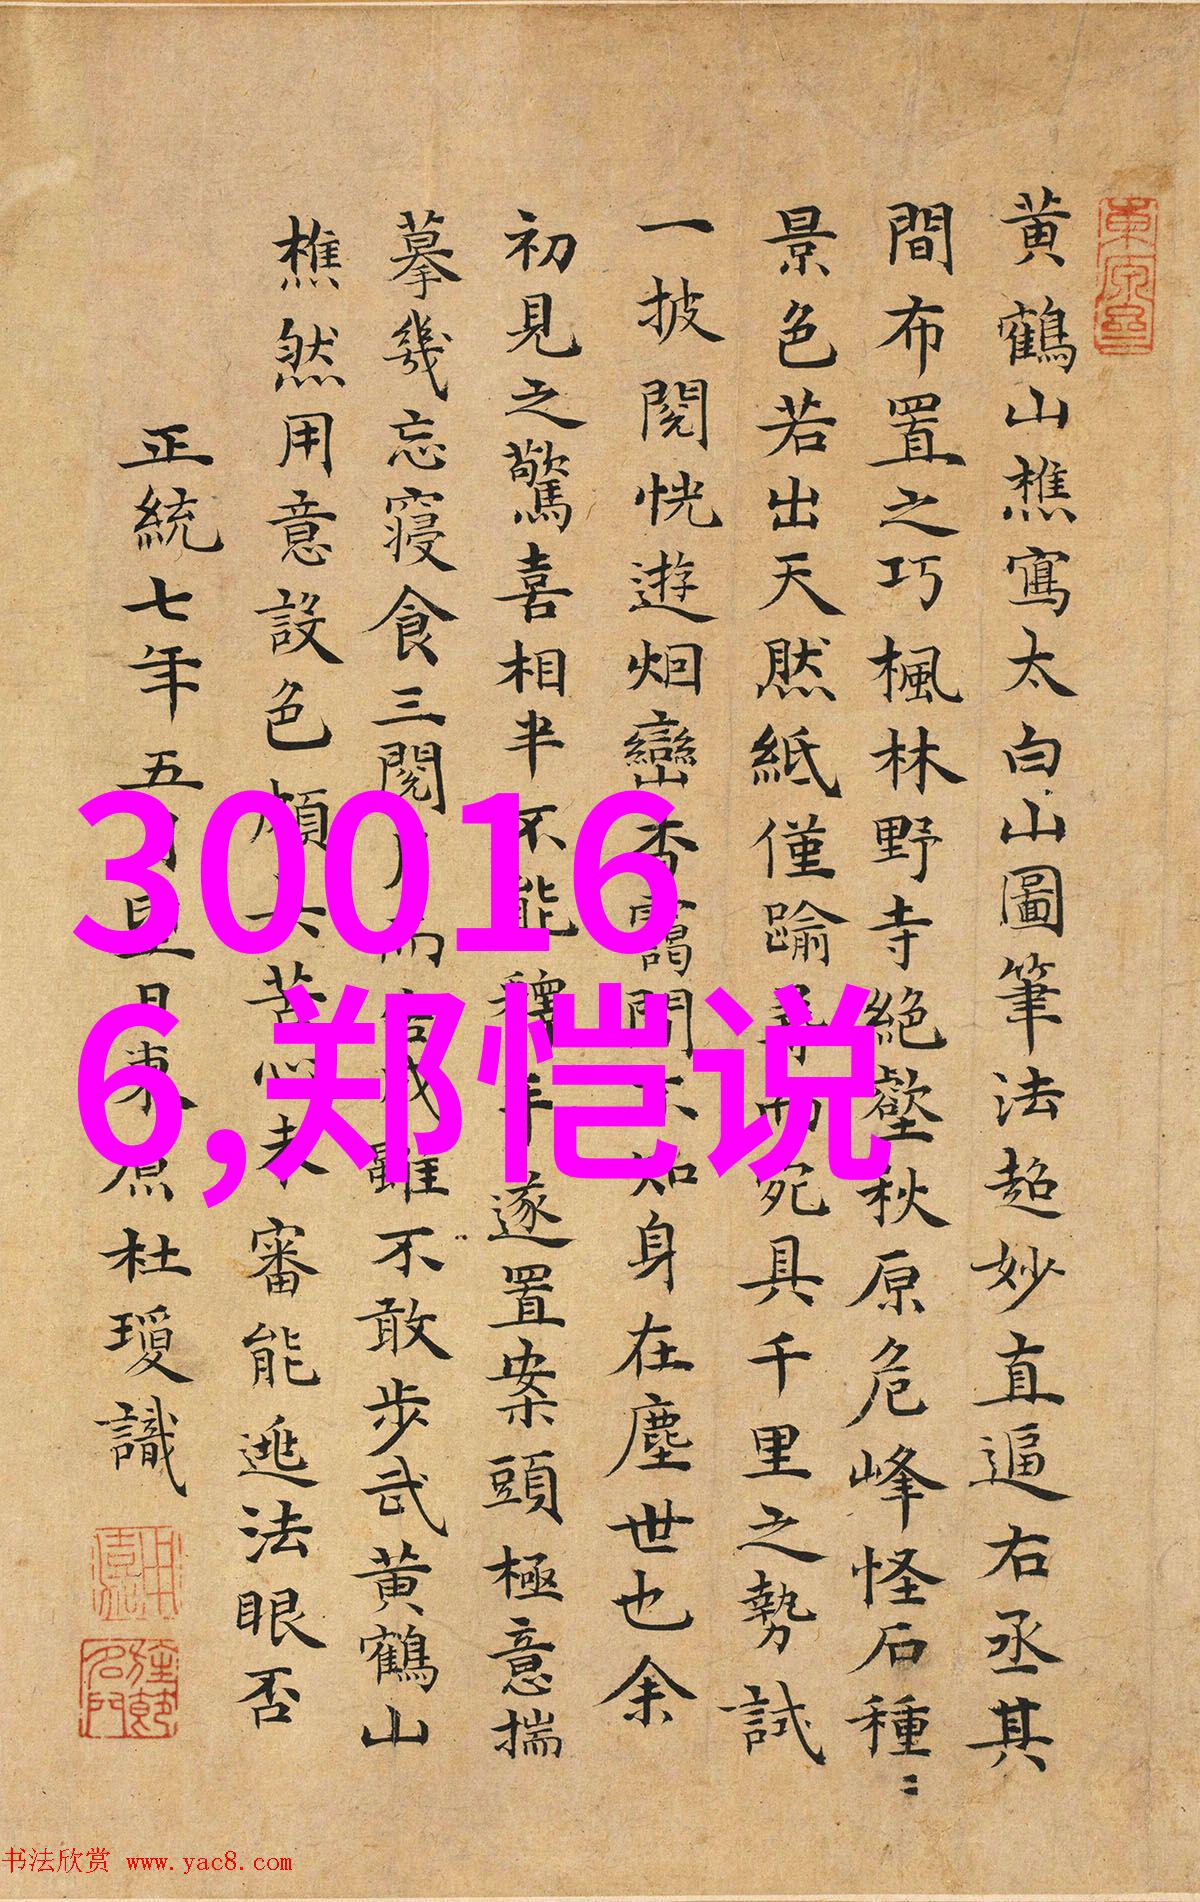 黄鶴山樵寫太白山圖筆法超妙直逼右丞其
間布置之巧楓林野寺絕壑秋原危峰怪石種〻
景色若出天然紙僅踰尋而宛具千里之勢試
一披閱恍遊烟巒杳靄間不知身在塵世也余
初見之驚喜相半不能釋手遂置案頭極意揣
摹幾忘寝食三閱月而告成雖不敢步武黄鶴山
樵然用意設色頗心未審能逃法眼否
正統七年五月東原杜瓊識
30016
6,郑恺说
书法欣赏 www.yac8.com